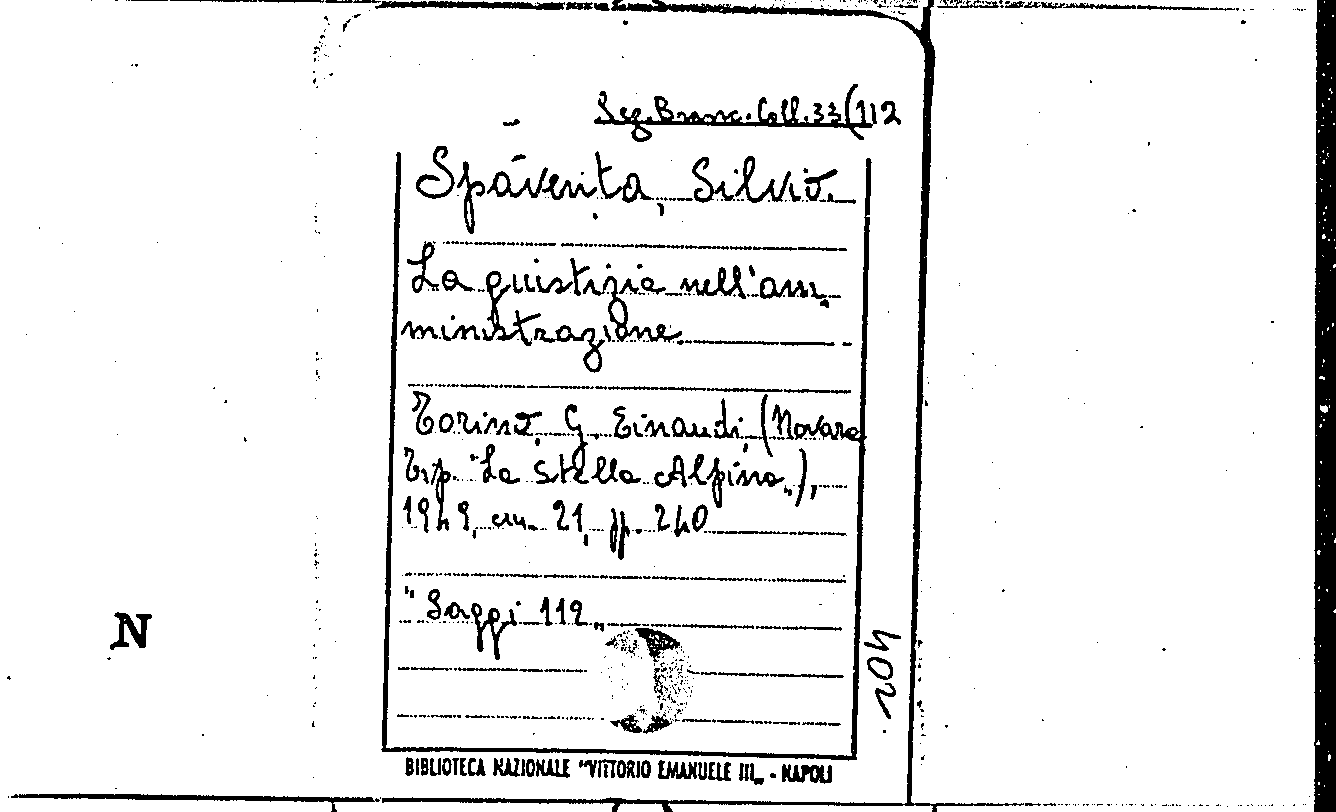 Sez. Branc. Coll. 33(112
Spaventa, Silvio.
La giustizia nell'am-
ministrazione.
Torino, G. Einaudi, (Novara
Tip. "La Stella Alpina„),
1949, cm. 21, pp. 240
"Saggi 112„
402
N
BIBLIOTECA NAZIONALE "VITTORIO EMANUELE III„ - NAPOLI